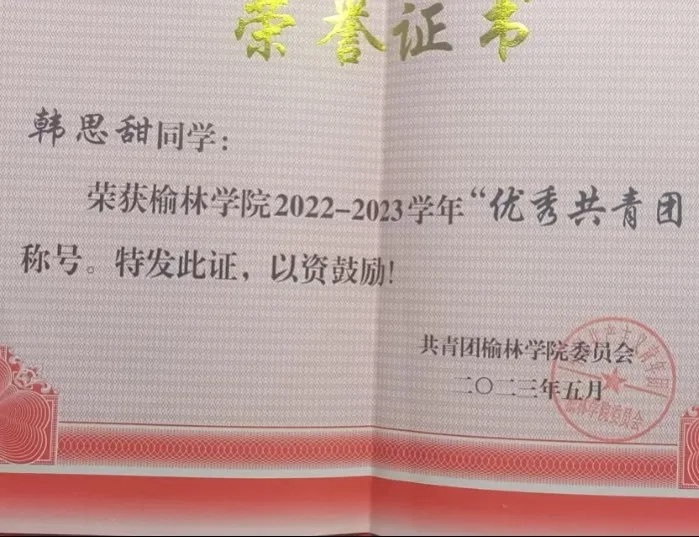 荣誉证书
韩思甜同学：
荣获榆林学院2022-2023学年“优秀共青团
称号。特发此证，以资鼓励!
共青团榆林学院委员会
二〇二三年五月
榆林学院委员会